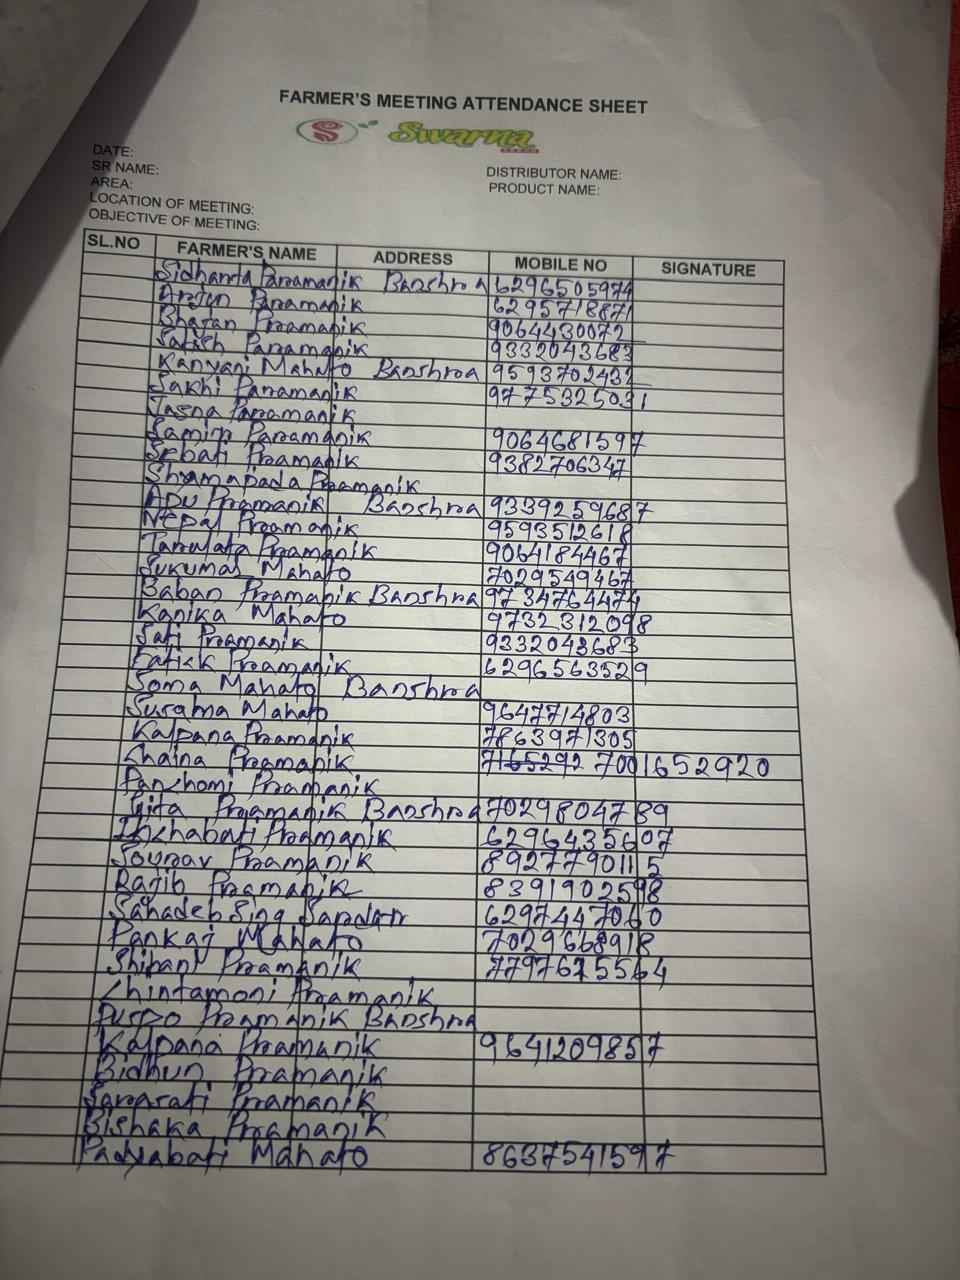 FARMER'S MEETING ATTENDANCE SHEET
S Swarna
DATE:
SR NAME:
AREA:
LOCATION OF MEETING:
OBJECTIVE OF MEETING:
DISTRIBUTOR NAME:
PRODUCT NAME:
SL.NO FARMER'S NAME ADDRESS MOBILE NO SIGNATURE
Sidhanta Paramanik Banshra 6296505974
Arjun Paramanik 6295718871
Bhajan Pramanik 9064430072
Satish Paramanik 9332043683
Kanyani Mahato Banshra 9593702432
Sakhi Paramanik 9775325031
Jasna Paramanik
Samir Paramanik 9064681597
Srbati Pramanik 9382706347
Shyamapada Pramanik
Apu Pramanik Banshra 9339259687
Nepal Pramanik 9593512618
Tarulata Pramanik 9064184467
Sukumar Mahato 7029549467
Baban Pramanik Banshra 9734764474
Kanika Mahato 9732312098
Sati Pramanik 9332043683
Fatick Pramanik 6296563529
Soma Mahato Banshra
Surama Mahato 9647714803
Kalpana Pramanik 7863971305
Chaina Pramanik 7001652920
Panchomi Pramanik
Gita Pramanik Banshra 7029804789
Ichhabati Pramanik 6296435607
Sourav Pramanik 8927790115
Rajib Pramanik 8391902598
Sahadeb Sing Sardar 6297447060
Pankaj Mahato 7029668918
Shibani Pramanik 7797675564
Chintamoni Pramanik
Puspo Pramanik Banshra
Kalpana Pramanik 9641209857
Bidhun Pramanik
Sarasati Pramanik
Bishaka Pramanik
Padyabati Mahato 8637541597